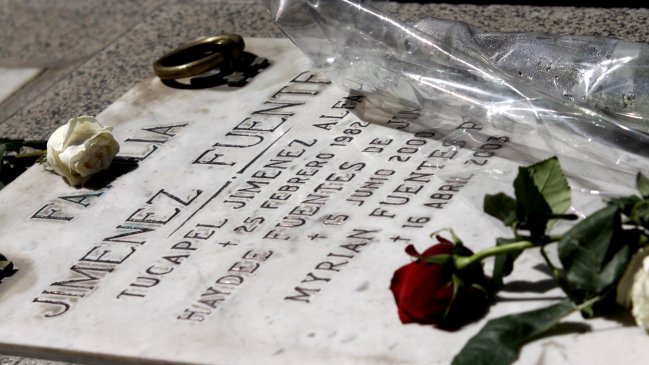 FAMILIA
JIMENEZ FUENTE
TUCAPEL JIMENEZ
+ 25 FEBRERO 1982
HAYDEE FUENTES DE
+ 15 JUNIO 2000
MYRIAN FUENTES
+ 16 ABRIL 2003